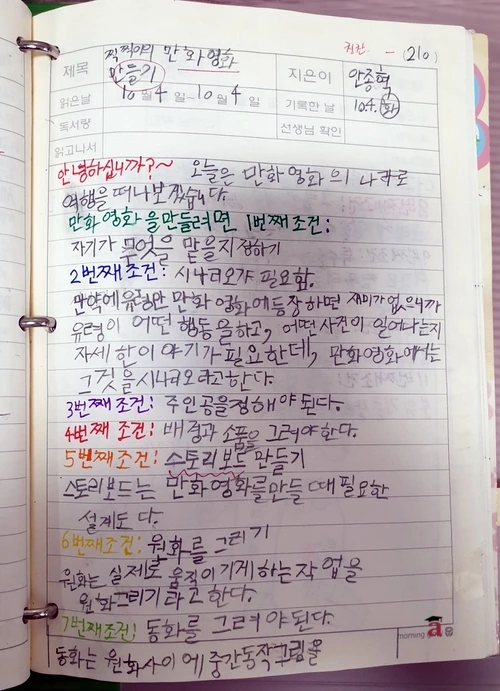 권장 - (210)
제목 찍찍이의 만화영화 만들기 지은이 안종혁
읽은날 10월 4일~10월 4일 기록한 날 10.4.(화)
독서량 선생님 확인
읽고나서
안녕하십니까?~ 오늘은 만화영화의 나라로
여행을 떠나보겠습니다.
만화영화을만들려면 1번째조건:
자기가 무엇을 맡을지정하기
2번째조건: 시나리오가 필요함.
만약에유령만 만화 영화에등장하면 재미가없으니까
유령이 어떤 행동을하고, 어떤사건이 일어나는지
자세한이야기가필요한데, 만화영화에서는
그것을시나리오라고한다.
3번째조건: 주인공을정해야된다.
4번째 조건: 배경과소품을그려야한다.
5번째조건: 스토리보드만들기
스토리보드는 만화영화를만들때필요한
설계도다.
6번째조건: 원화를그리기
원화는실제로움직이기게하는작업을
원화그리기라고한다.
7번째조건: 동화를그려야된다.
동화는원화사이에중간동작그림을
morning a